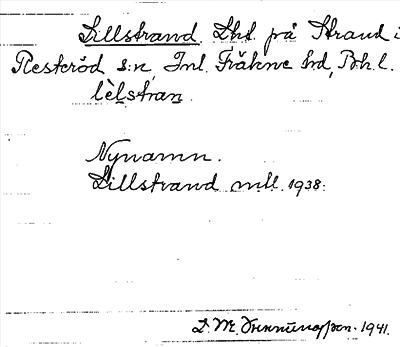 Lillstrand. Lht. på Strand i
Resteröd s:n, Inl. Fräkne hd, Boh.l.
lèlstran.
Nynamn.
Lillstrand mtl. 1938.
1941.